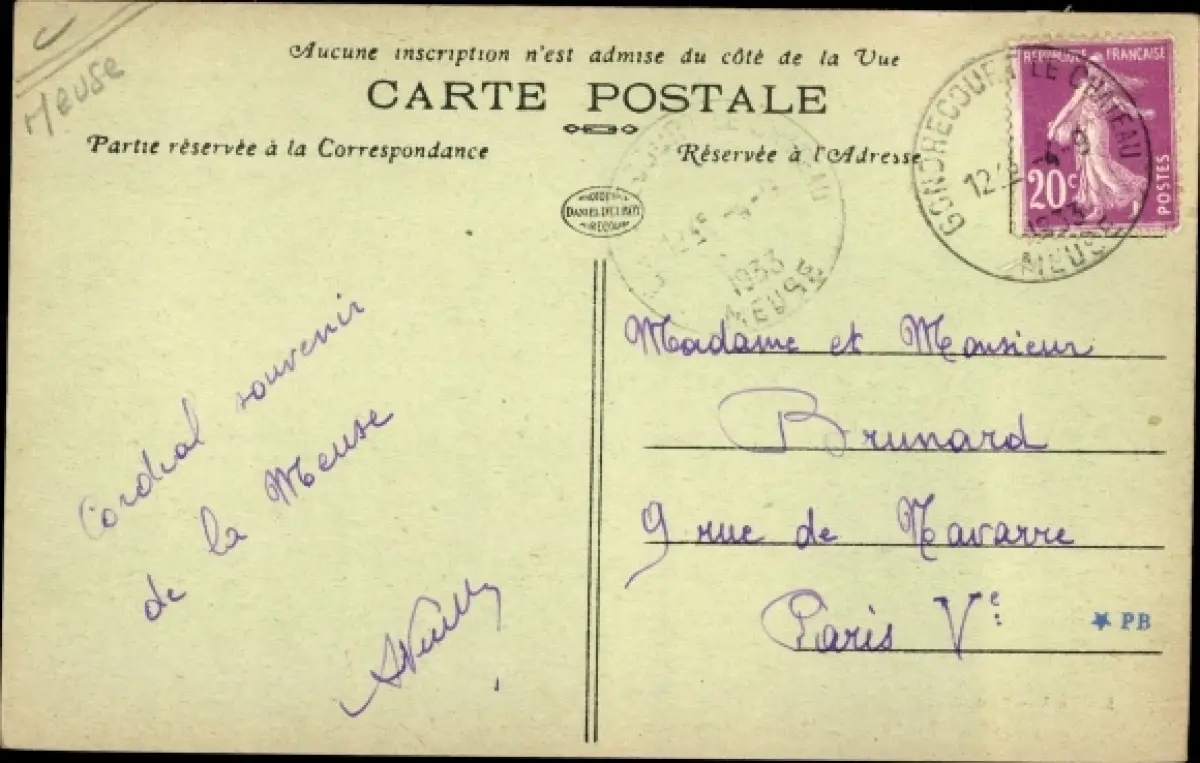 Meuse
Aucune inscription n'est admise du côté de la Vue
CARTE POSTALE
Partie réservée à la Correspondance
Réservée à l'Adresse
REPUBLIQUE FRANÇAISE
20c
POSTES
GONDRECOURT LE CHATEAU
1933
MEUSE
1933
MEUSE
Cordial souvenir
de la Meuse
Madame et Monsieur
Brunard
9 rue de Navarre
Paris Ve
PB